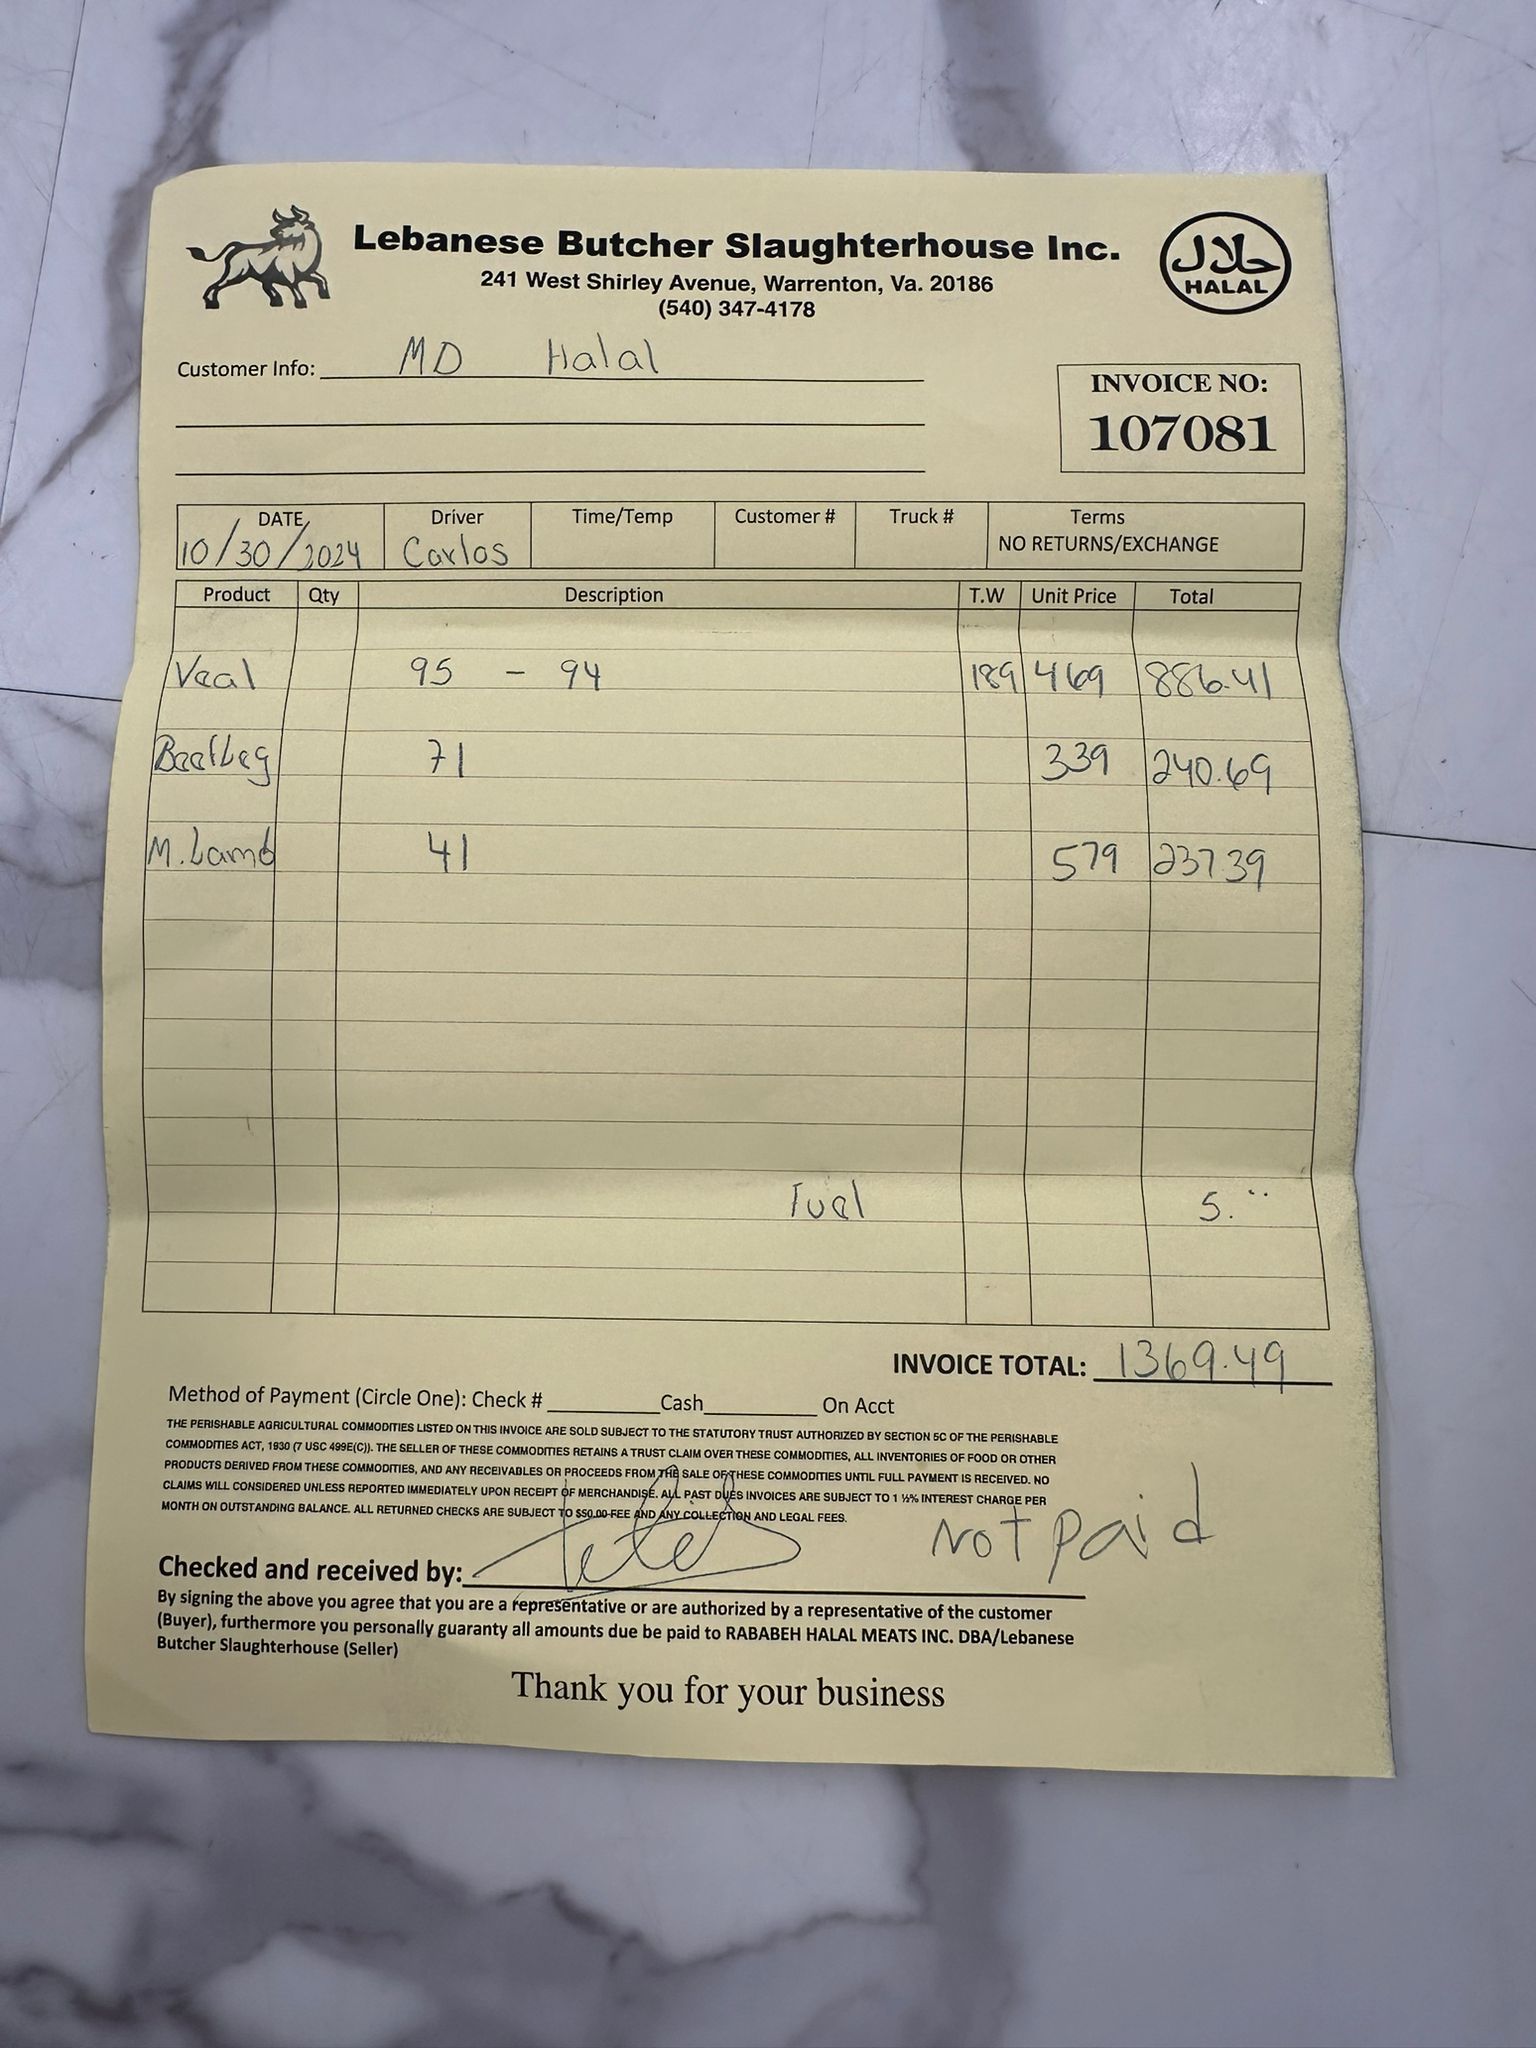 Lebanese Butcher Slaughterhouse Inc.
241 West Shirley Avenue, Warrenton, Va. 20186
(540) 347-4178
حلال
HALAL
Customer Info: MD Halal
INVOICE NO:
107081
DATE Driver Time/Temp Customer # Truck # Terms
10/30/2024 Carlos NO RETURNS/EXCHANGE
Product Qty Description T.W Unit Price Total
Veal 95 - 94 189 469 886.41
Beef Leg 71 339 240.69
M. Lamb 41 579 237.39
Fuel 5.
INVOICE TOTAL: 1369.49
Method of Payment (Circle One): Check # Cash On Acct
THE PERISHABLE AGRICULTURAL COMMODITIES LISTED ON THIS INVOICE ARE SOLD SUBJECT TO THE STATUTORY TRUST AUTHORIZED BY SECTION 5C OF THE PERISHABLE
COMMODITIES ACT, 1930 (7 USC 499E(C)). THE SELLER OF THESE COMMODITIES RETAINS A TRUST CLAIM OVER THESE COMMODITIES, ALL INVENTORIES OF FOOD OR OTHER
PRODUCTS DERIVED FROM THESE COMMODITIES, AND ANY RECEIVABLES OR PROCEEDS FROM THE SALE OF THESE COMMODITIES UNTIL FULL PAYMENT IS RECEIVED. NO
CLAIMS WILL CONSIDERED UNLESS REPORTED IMMEDIATELY UPON RECEIPT OF MERCHANDISE. ALL PAST DUES INVOICES ARE SUBJECT TO 1 ½% INTEREST CHARGE PER
MONTH ON OUTSTANDING BALANCE. ALL RETURNED CHECKS ARE SUBJECT TO $50.00 FEE AND ANY COLLECTION AND LEGAL FEES.
Not paid
Checked and received by:
By signing the above you agree that you are a representative or are authorized by a representative of the customer
(Buyer), furthermore you personally guaranty all amounts due be paid to RABABEH HALAL MEATS INC. DBA/Lebanese
Butcher Slaughterhouse (Seller)
Thank you for your business